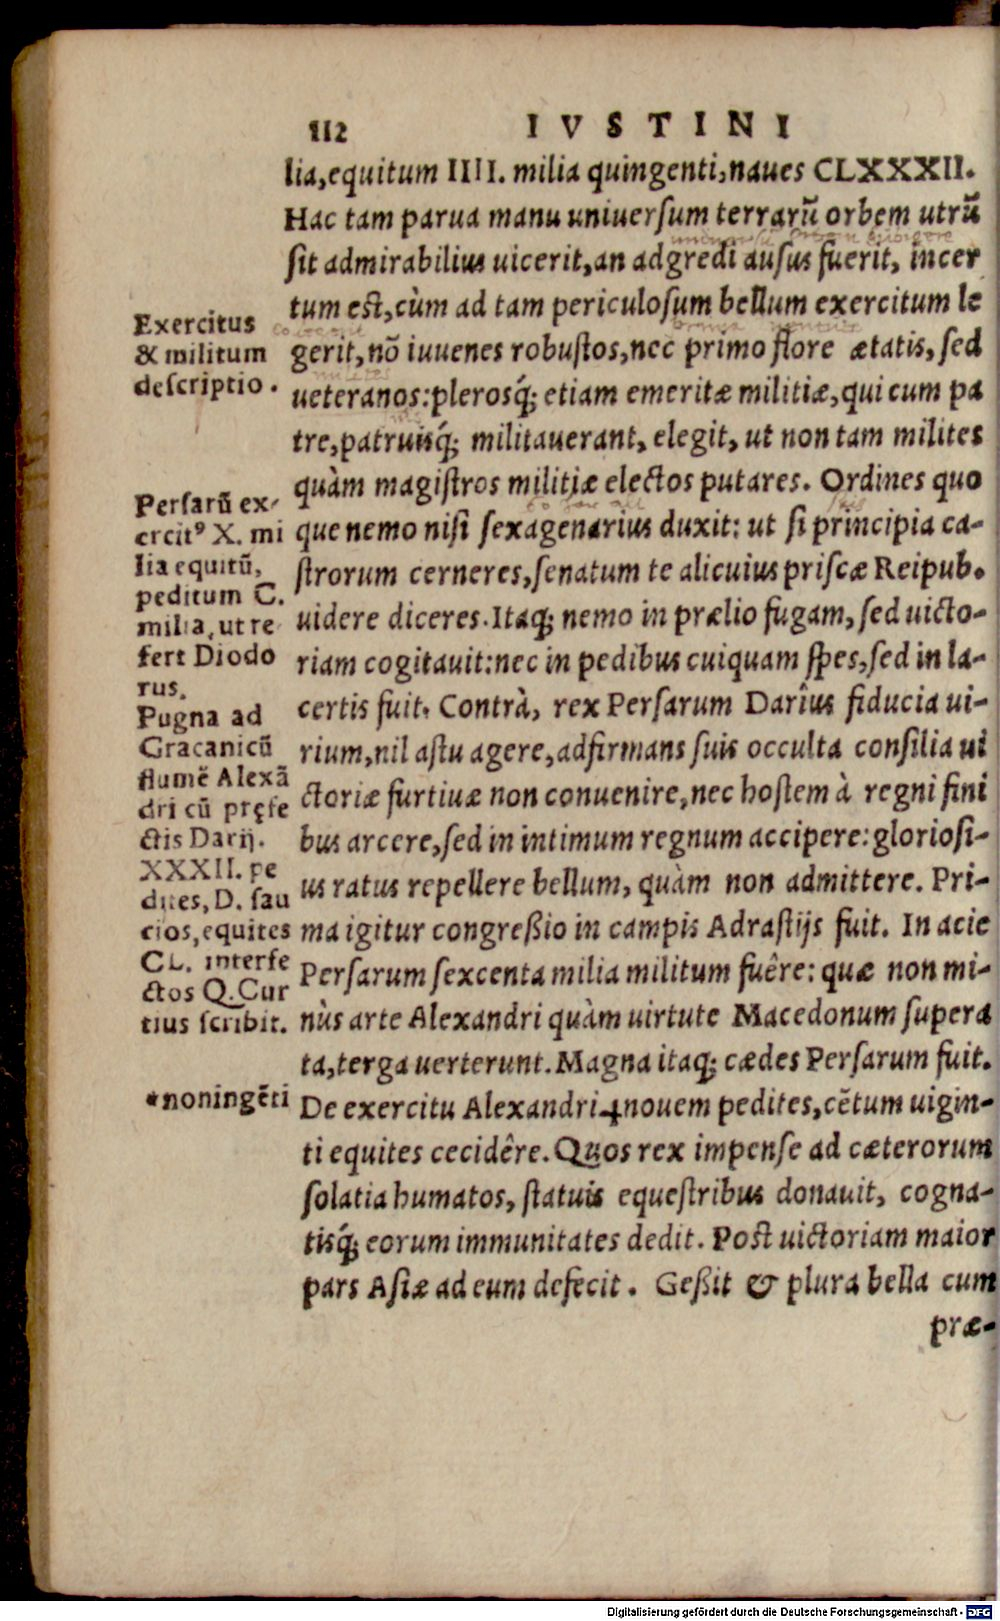 112 IVSTINI
lia,equitum IIII. milia quingenti,naues CLXXXII.
Hac tam parua manu uniuersum terrarũ orbem utrũ
sit admirabilius uicerit,an adgredi ausus fuerit, incer
tum est,cùm ad tam periculosum bellum exercitum le
gerit,nõ iuuenes robustos,nec primo flore ætatis, sed
ueteranos:plerosq́; etiam emeritæ militiæ,qui cum pa
tre,patruisq́; militauerant, elegit, ut non tam milites
quàm magistros militiæ electos putares. Ordines quo
que nemo nisi sexagenarius duxit: ut si principia ca-
strorum cerneres,senatum te alicuius priscæ Reipub.
uidere diceres.Itaq; nemo in prælio fugam, sed uicto-
riam cogitauit:nec in pedibus cuiquam spes,sed in la-
certis fuit. Contrà, rex Persarum Darîus fiducia ui-
rium,nil astu agere,adfirmans suis occulta consilia ui
ctoriæ furtiuæ non conuenire,nec hostem à regni fini
bus arcere,sed in intimum regnum accipere:gloriosi-
us ratus repellere bellum, quàm non admittere. Pri-
ma igitur congreßio in campis Adrastijs fuit. In acie
Persarum sexcenta milia militum fuêre: quæ non mi-
nùs arte Alexandri quàm uirtute Macedonum supera
ta,terga uerterunt. Magna itaq; cædes Persarum fuit.
De exercitu Alexandri nouem pedites,cẽtum uigin-
ti equites cecidêre. Quos rex impense ad cæterorum
solatia humatos, statuis equestribus donauit, cogna-
tisq́; eorum immunitates dedit. Post uictoriam maior
pars Asiæ ad eum defecit. Geßit & plura bella cum
præ-
Exercitus
& militum
descriptio.
Persarũ ex-
ercit⁹ X. mi
lia equitũ,
peditum C.
milia, ut re
fert Diodo
rus.
Pugna ad
Gracanicũ
flumẽ Alexã
dri cũ pręfe
ctis Darij.
XXXII. pe
dites, D. sau
cios, equites
CL. interfe
ctos Q. Cur
tius scribit.
*noningẽti
Digitalisierung gefördert durch die Deutsche Forschungsgemeinschaft - DFG